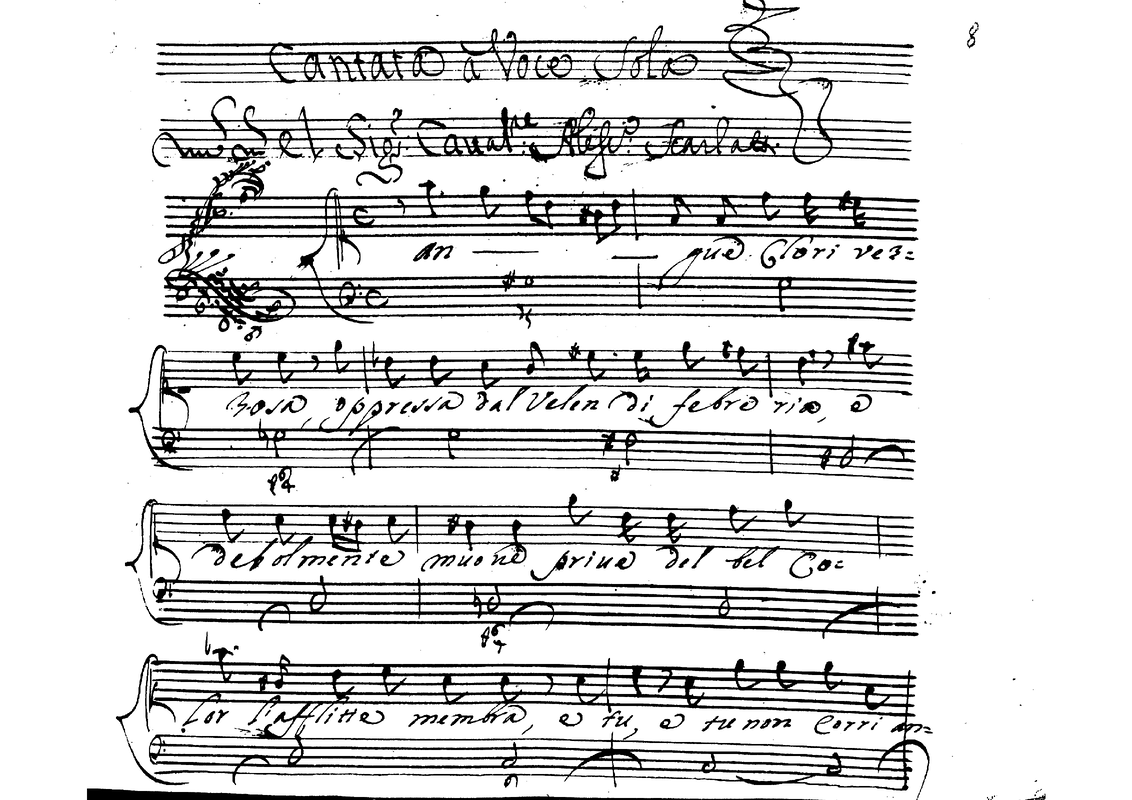 8
Cantata à Voce Sola
Del Sigr. Caual.re Aless.o Scarlatti.
an — — gue Clori vez=
zosa, oppressa dal Velen di febre ria, e
debolmente muoue priue del bel Co=
lor l'afflitte membra, e tu, e tu non Corri an=